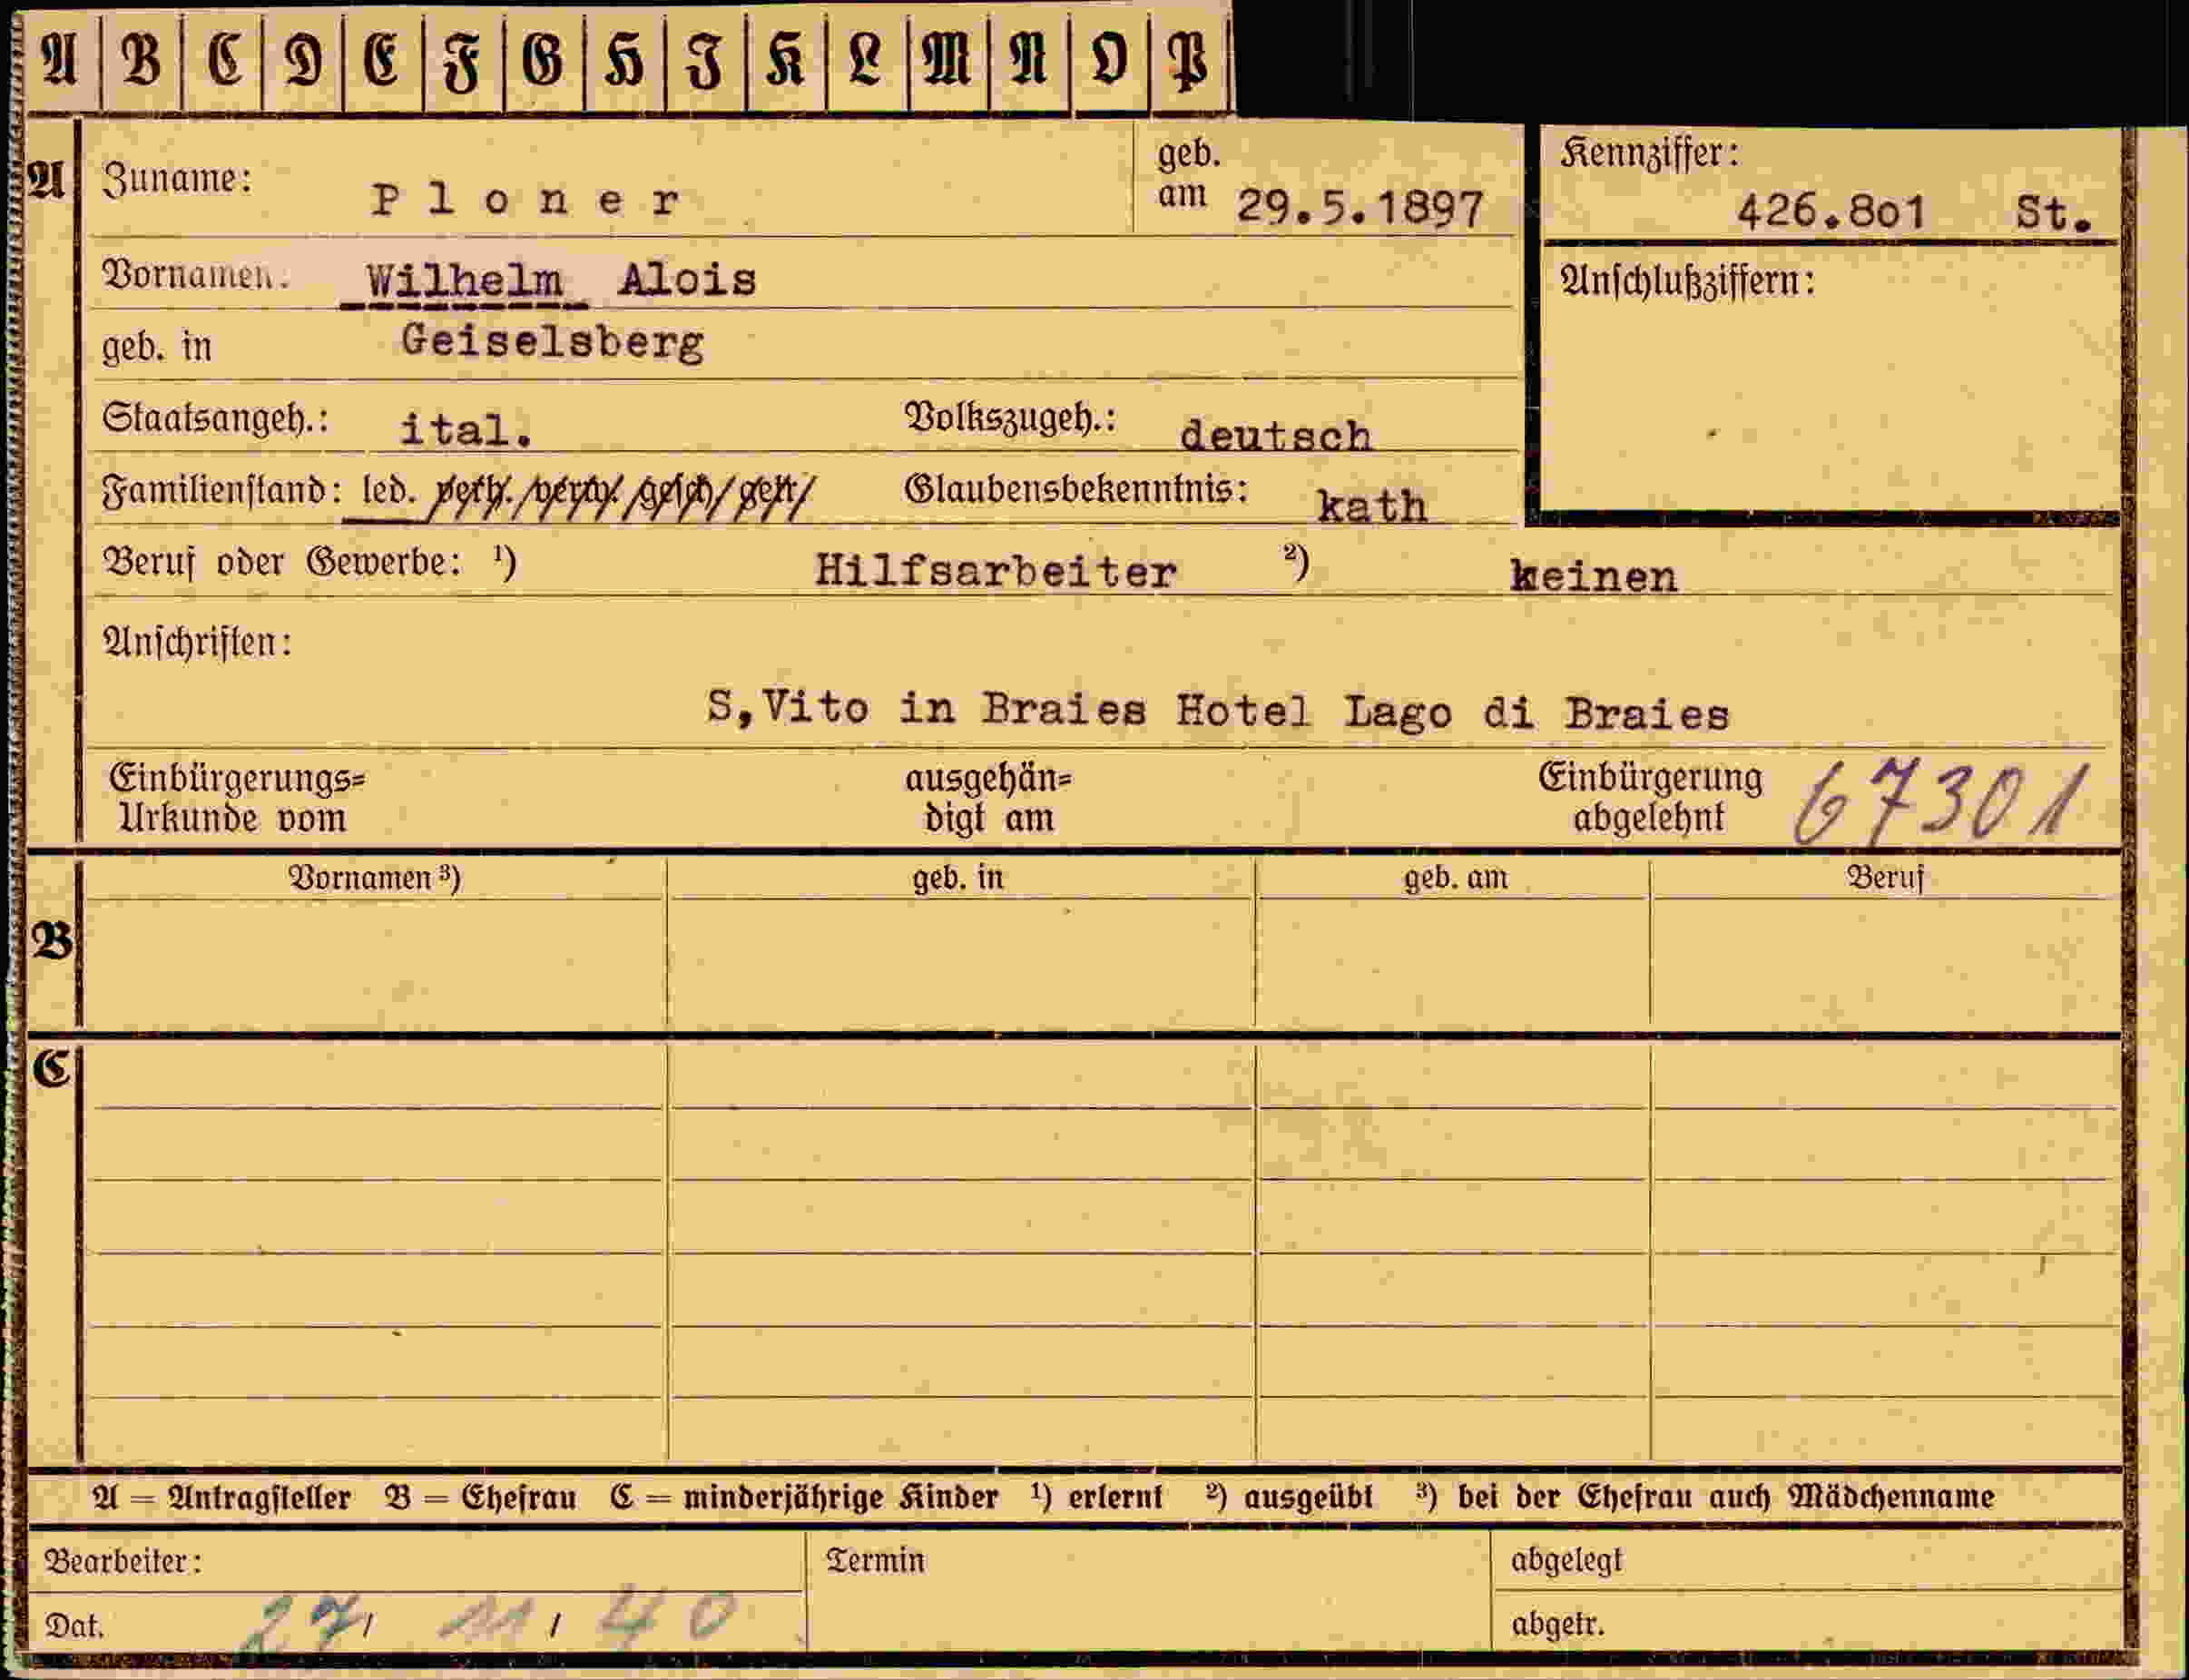 A B C D E F G H I K L M N O P
A Zuname: Ploner geb. am 29.5.1897 Kennziffer: 426.8o1 St.
Vornamen: Wilhelm Alois Anschlußziffern:
geb. in Geiselsberg
Staatsangeh.: ital. Volkszugeh.: deutsch
Familienstand: led. verh. verw. gesch. getr. Glaubensbekenntnis: kath
Beruf oder Gewerbe: ¹) Hilfsarbeiter ²) keinen
Anschriften:
S,Vito in Braies Hotel Lago di Braies
Einbürgerungs= ausgehän= Einbürgerung 67301
Urkunde vom digt am abgelehnt
Vornamen ³) geb. in geb. am Beruf
B
C
A = Antragsteller B = Ehefrau C = minderjährige Kinder ¹) erlernt ²) ausgeübt ³) bei der Ehefrau auch Mädchenname
Bearbeiter: Termin abgelegt
Dat. 27/ 11/ 40 abgetr.